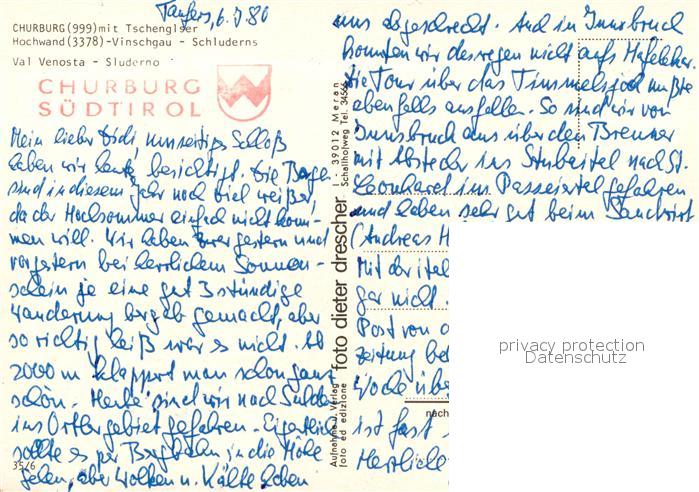 Taufers, 6.7.80
CHURBURG (999) mit Tschenglser
Hochwand (3378)-Vinschgau - Schluderns
Val Venosta - Sluderno
CHURBURG
SÜDTIROL
Mein lieber Didi, umseitiges Schloß
haben wir heute besichtigt. Die Berge
sind in diesem Jahr noch viel weißer,
da der Hochsommer einfach nicht kom-
men will. Wir haben zwar gestern und
vorgestern bei herrlichem Sonnen-
schein je eine gut 3stündige
Wanderung bergab gemacht, aber
so richtig heiß war es nicht. Ab
2000 m klappert man schon ganz
schön. Heute sind wir nach Sulden
ins Ortlergebiet gefahren. Eigentlich
sollte es per Bergbahn in die Höhe
gehen, aber Wolken u. Kälte haben
35/6
uns abgeschreckt. Auch in Innsbruck
konnten wir deswegen nicht aufs Hafelekar.
Die Tour über das Timmelsjoch mußte
ebenfalls ausfallen. So sind wir von
Innsbruck aus über den Brenner
mit Abstecher ins Stubaital nach St.
Leonhard im Passeiertal gefahren
und haben sehr gut beim Sandwirt
(Andreas H
Mit der ital
gar nicht.
Post von
zeitung be
Woche übe
nach
ist fast
Herzliche
Aufnahme u. Verlag
foto ed edizione
foto dieter drescher
I - 39012 Meran
Schallhofweg Tel. 34566
privacy protection
Datenschutz